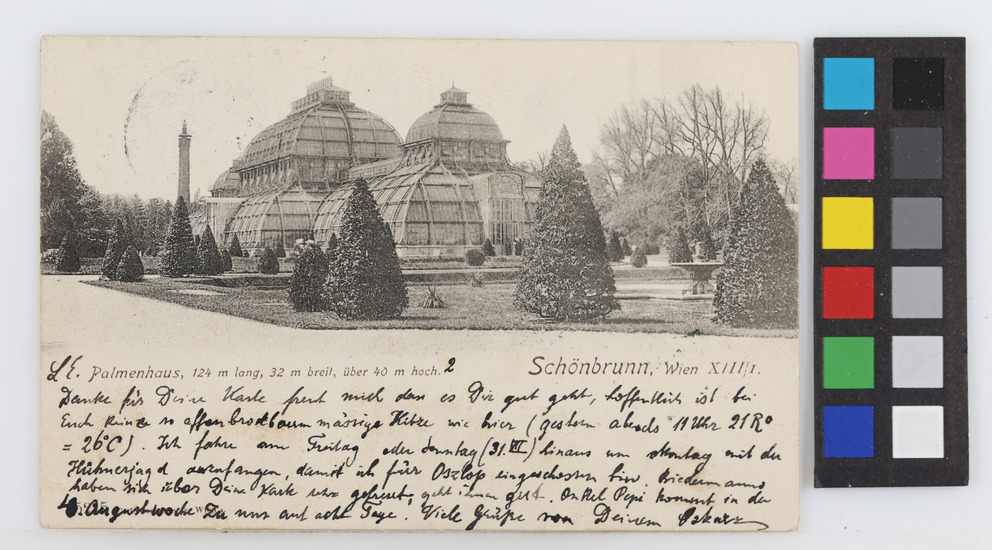 L E. Palmenhaus, 124 m lang, 32 m breit, über 40 m hoch. 2 Schönbrunn, Wien XIII/1.
Danke für Deine Karte freut mich dass es Dir gut geht, hoffentlich ist bei
Euch keine so affenbrodbaummässige Hitze wie hier (gestern abends 11 Uhr 21 R°
= 26°C). Ich fahre am Freitag oder Sonntag (31. VII) hinaus um Montag mit der
Hühnerjagd anzufangen, damit ich für Oszlop eingeschossen bin. Riedermanns
haben sich über Deine Karte sehr gefreut, geht ihnen gut. Onkel Pepi kommt in der
Augustwoche zu uns auf acht Tage. Viele Grüße von Deinem Oskar